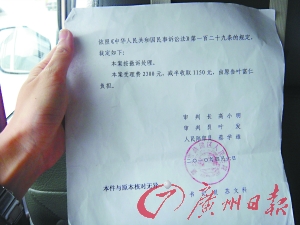 依照《中华人民共和国民事诉讼法》第一百二十九条的规定,
裁定如下:
本案按撤诉处理。
本案受理费2300元,减半收取1150元,由原告叶富仁
负担。
审判长 高小刚
审判员 叶发
人民陪审员
本件与原本核对无异
书
广州日报